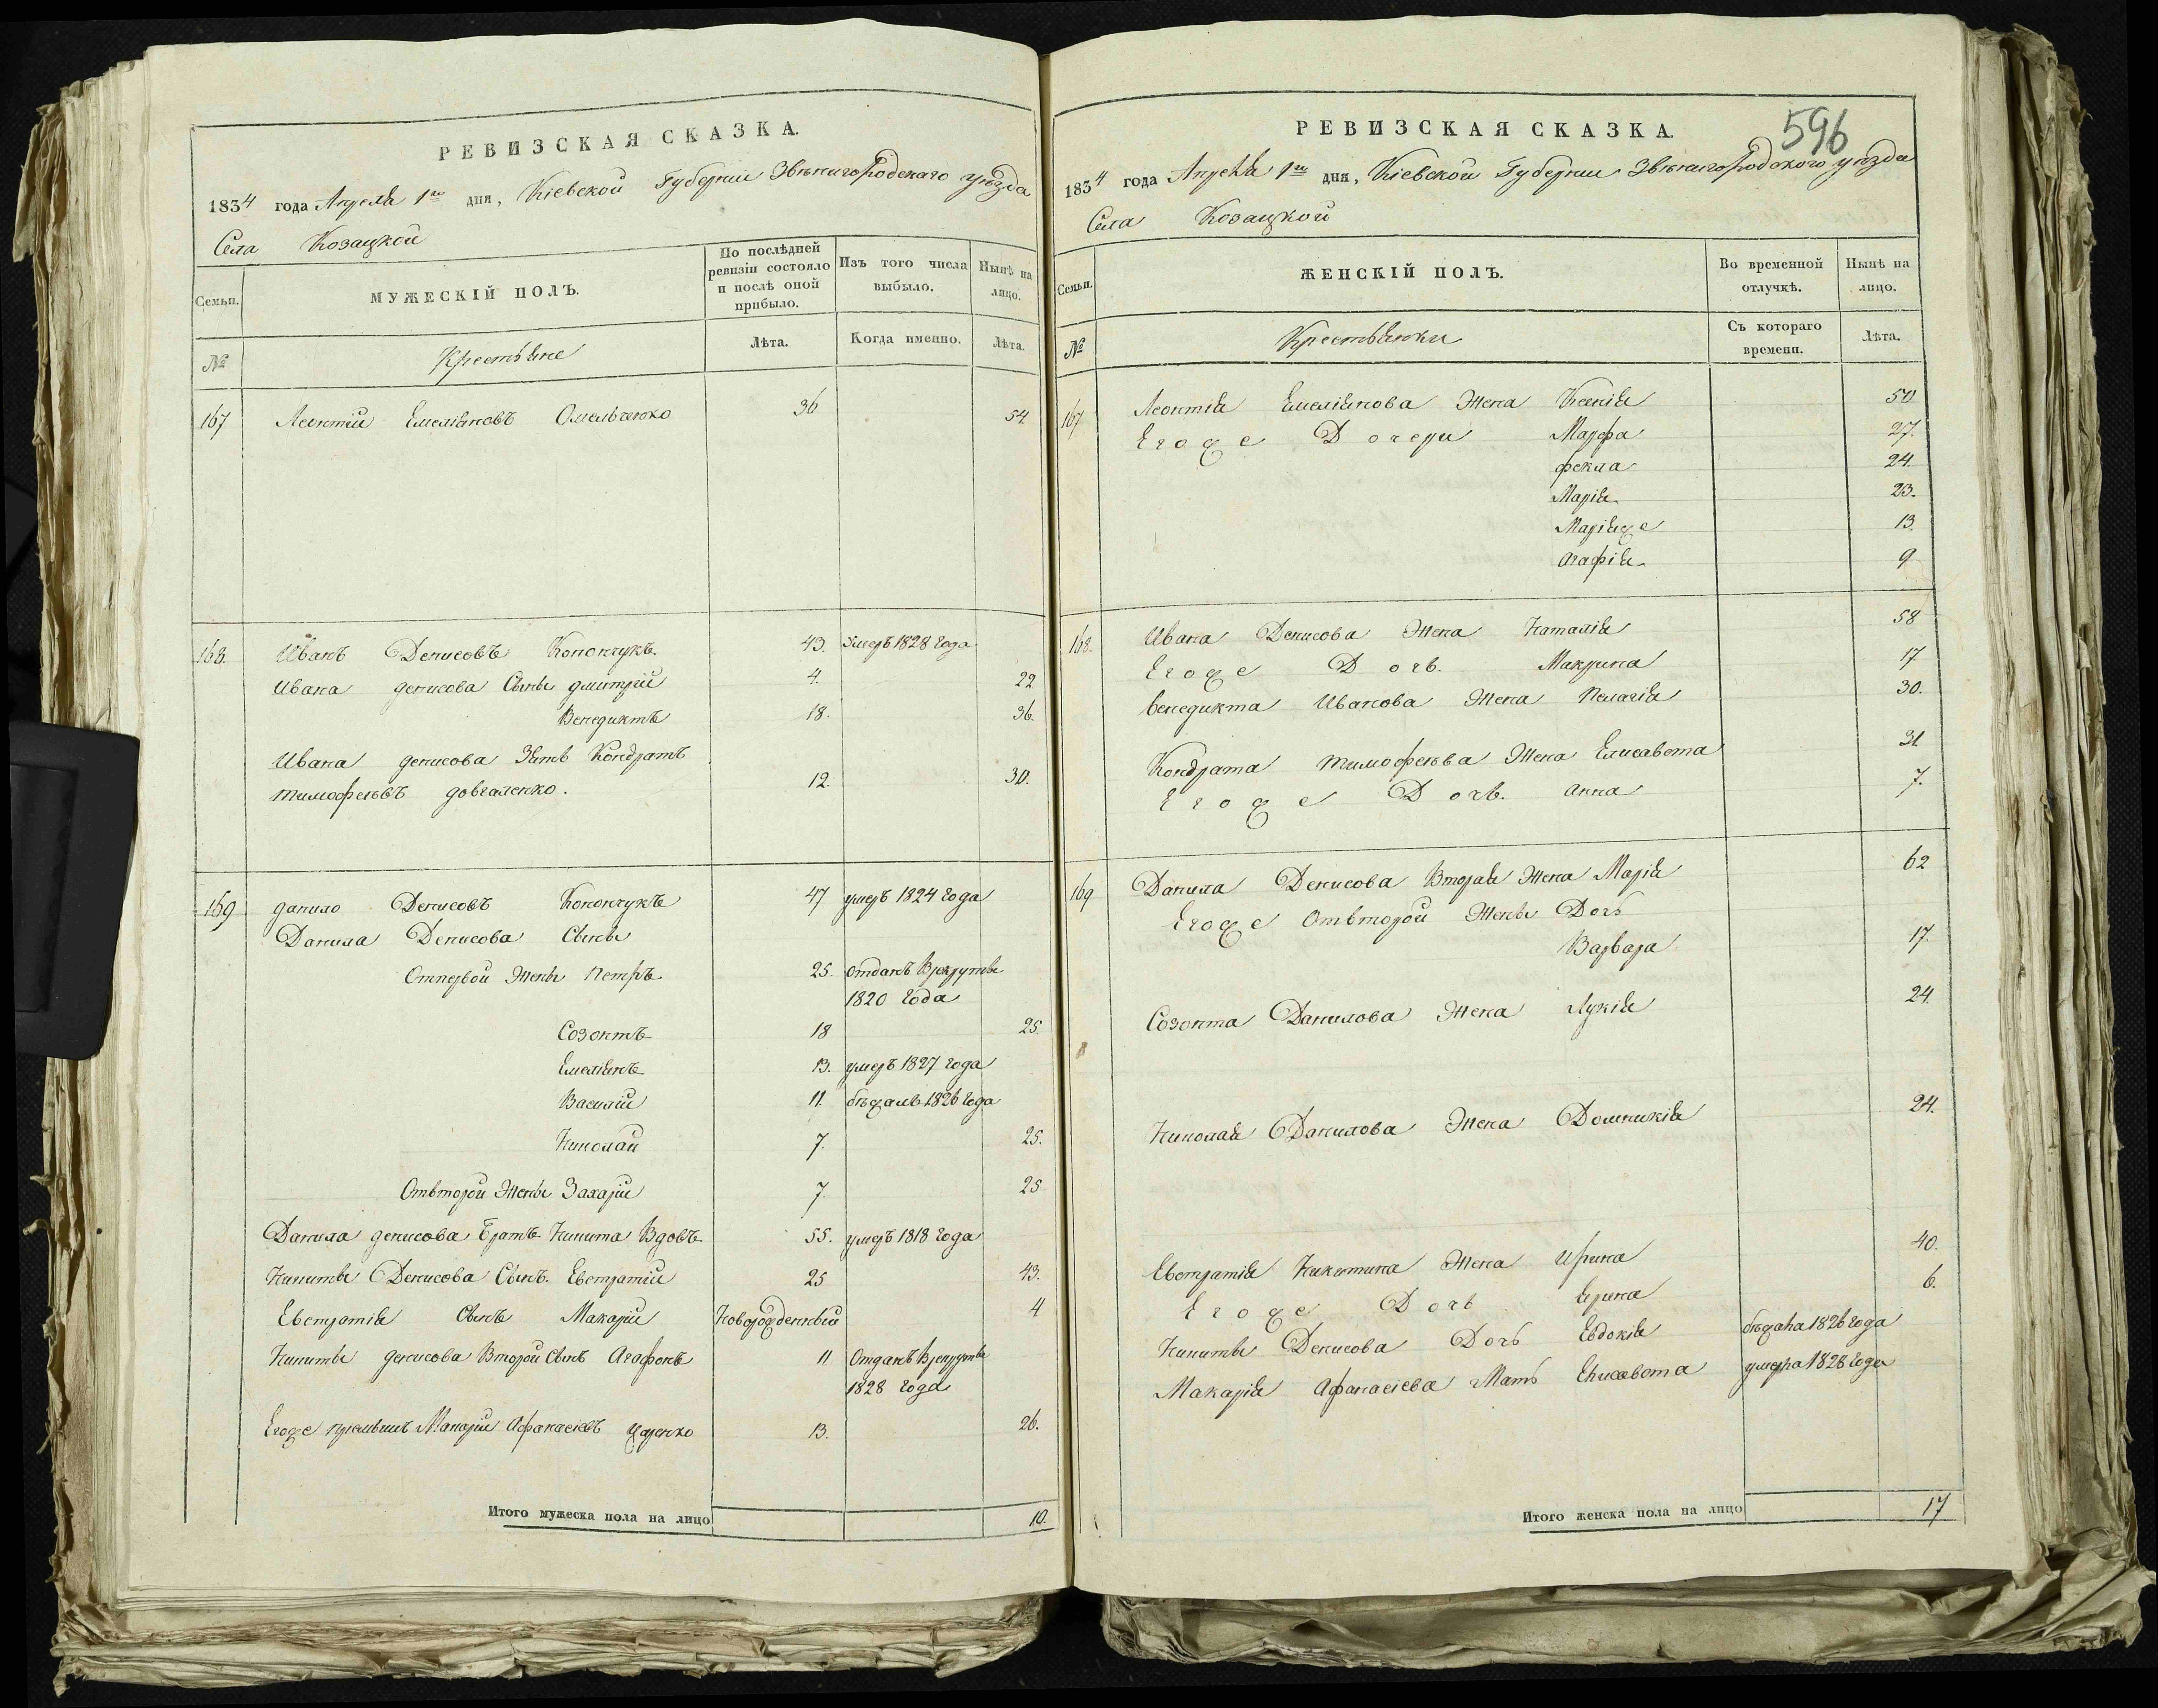 РЕВИЗСКАЯ СКАЗКА.
1834 года Апреля 1го дня, Кіевской Губерніи Звѣнигородскаго уѣзда
Села Козацкой
Семьи.
МУЖЕСКІЙ ПОЛЪ.
По послѣдней ревизіи состояло и послѣ оной прибыло.
Изъ того числа выбыло.
Нынѣ на лицо.
№
Крестьяне
Лѣта.
Когда именно.
Лѣта.
167 Леонтій Емеліяновъ Омельченко 36 54.
168. Иванъ Денисовъ Конончукъ 43. Умеръ 1828 года
Ивана денисова Сыны дмитрій 4. 22
Венедиктъ 18. 36.
Ивана денисова Зять Кондратъ
тимофеѣвъ довгаленко. 12. 30.
169 данило Денисовъ Конончукъ 47 умеръ 1824 года
Данила Денисова Сыны
Отпервой Жены Петръ 25. отданъ Врекруты
1820 года
Созонтъ 18 25.
Емеліянъ 13. умеръ 1827 года
Василій 11. бѣжалъ 1826 года
Николай 7. 25.
Отвторой Жены Захарій 7. 25
Данила денисова братъ Никита Вдовъ 55. умеръ 1818 года
Никиты Денисова Сынъ. Евстратій 25 43.
Евстратія Сынъ Макарій Новорожденный 4
Никиты денисова Второй Сынъ Агафонъ 11 Отданъ Врекруты
1828 года
Егоже пріемышъ Макарій Афанасіевъ 13. 26.
Итого мужеска пола на лицо 10.
РЕВИЗСКАЯ СКАЗКА.
596
1834 года Апреля 1го дня, Кіевской Губерніи Звѣнигородского уѣзда
Села Козацкой
Семьи.
ЖЕНСКІЙ ПОЛЪ.
Во временной отлучкѣ.
Нынѣ на лицо.
№
Крестьянки
Съ котораго времени.
Лѣта.
167 Леонтія Емеліянова Жена Ксенія 50
Егоже Дочери Марфа 27.
фекла 24.
Марія 23.
Маріяже 13.
Агафія 9
168. Ивана Денисова Жена Наталія 58
Егоже Дочь. Макрина 17
венедикта Иванова Жена Пелагія 30.
Кондрата тимофеѣва Жена Елисавета 31
Егоже Дочь. анна 7.
169 Данила Денисова Вторая Жена Марія 62
Егоже Отвторой Жены Дочь
Варвара 17.
Созонта Данилова Жена Лукія 24.
Николая Данилова Жена Домникія 24.
Евстратія Никитина Жена Ирина 40.
Егоже Дочь Ирина 6.
Никиты Денисова Дочь Евдокія бѣжала 1826 года
Макарія Афанасіева Мать Елисавета умерла 1828 года
Итого женска пола на лицо 17